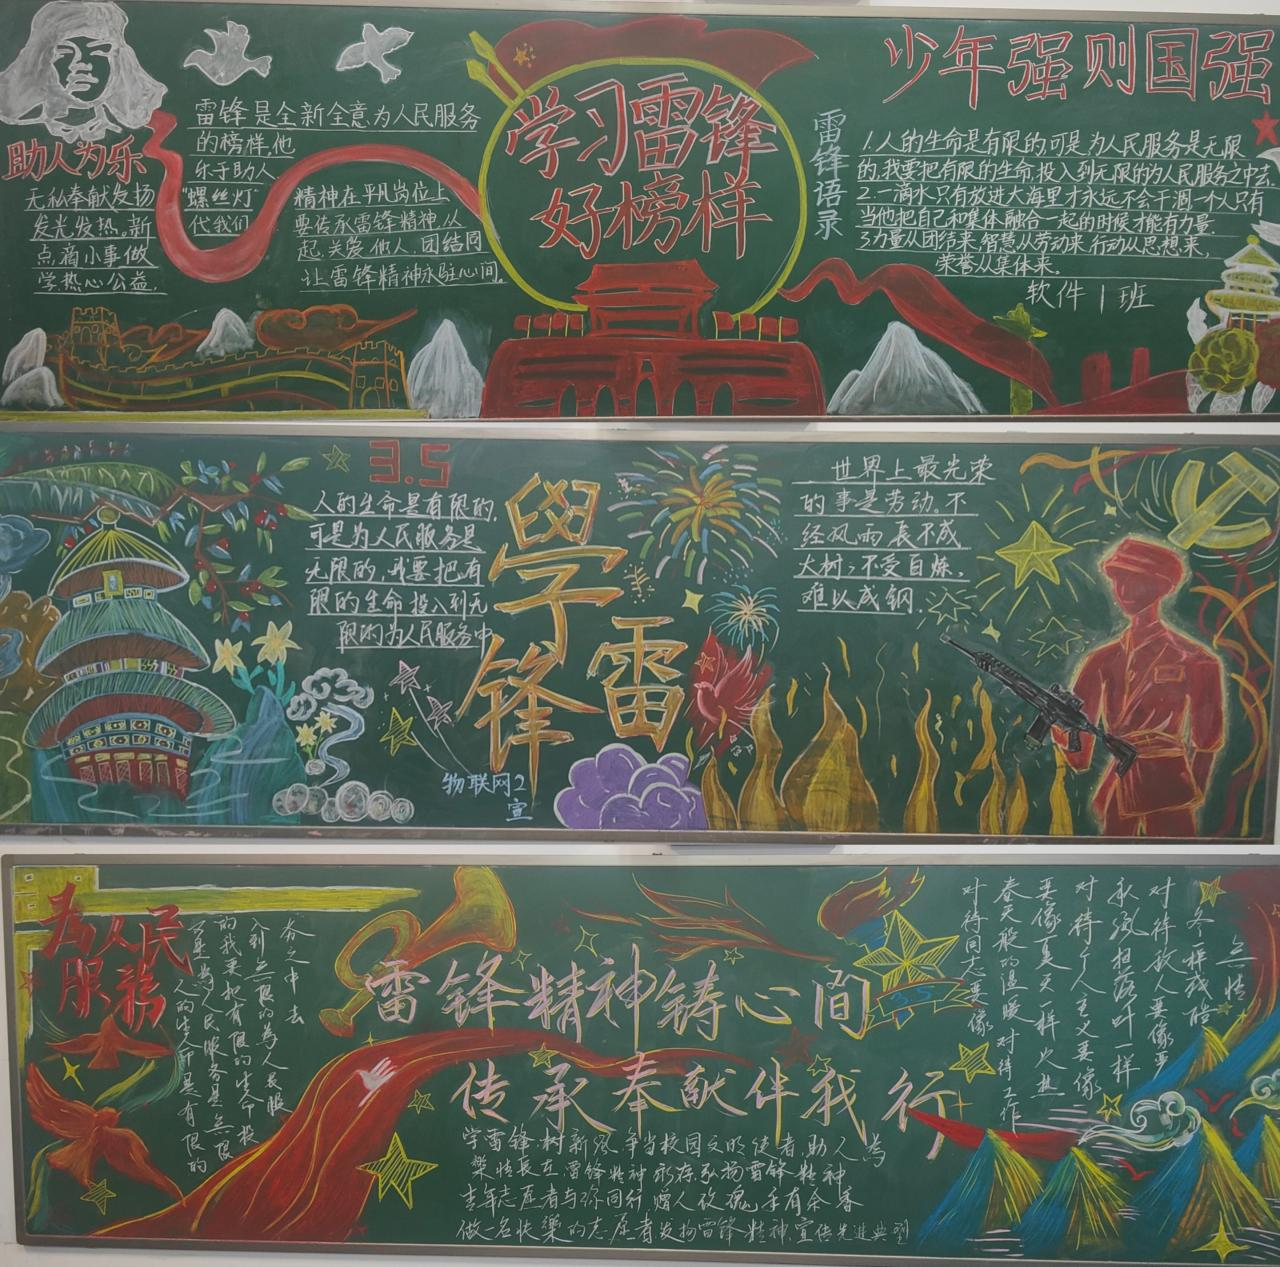 学习雷锋
好榜样
少年强则国强
助人为乐
无私奉献发扬
发光发热。新
点滴小事做
学热心公益.
雷锋是全新全意为人民服务
的榜样,他
乐于助人
"螺丝灯"
代我们
精神在平凡岗位上
要传承雷锋精神从
起,关爱他人,团结同
让雷锋精神永驻心间,
雷锋语录
1.人的生命是有限的,可是为人民服务是无限
的,我要把有限的生命,投入到无限的为人民服务之中去.
2.一滴水只有放进大海里才永远不会干涸一个人只有
当他把自己和集体融合一起的时候才能有力量.
3.力量从团结来,智慧从劳动来,行动从思想来,
荣誉从集体来.
软件1班
3.5
人的生命是有限的,
可是为人民服务是
无限的,我要把有
限的生命投入到无
限的为人民服务中
學
雷
锋
物联网2
宣
世界上最光荣
的事是劳动。不
经风雨,長不成
大树;不受百炼,
难以成钢.
为人民
服務
人的生命是有限的
可是為人民服务是无限
的我要把有限的生命投
入到无限的為人民服
务之中去
雷锋精神铸心间
传承奉献伴我行
3.5
学雷锋.树新风.争当校园文明使者,助人為
樂情長在.雷锋精神永存,弘扬雷锋精神
青年志愿者与你同行,赠人玫瑰,手有余香
做一名快樂的志愿者发扬雷锋精神,宣传先进典型
对待同志要像
春天般的温暖 对待工作
要像夏天一样火热
对待个人主义要像
秋风扫落叶一样
对待敌人要像严
冬一样残酷
无情